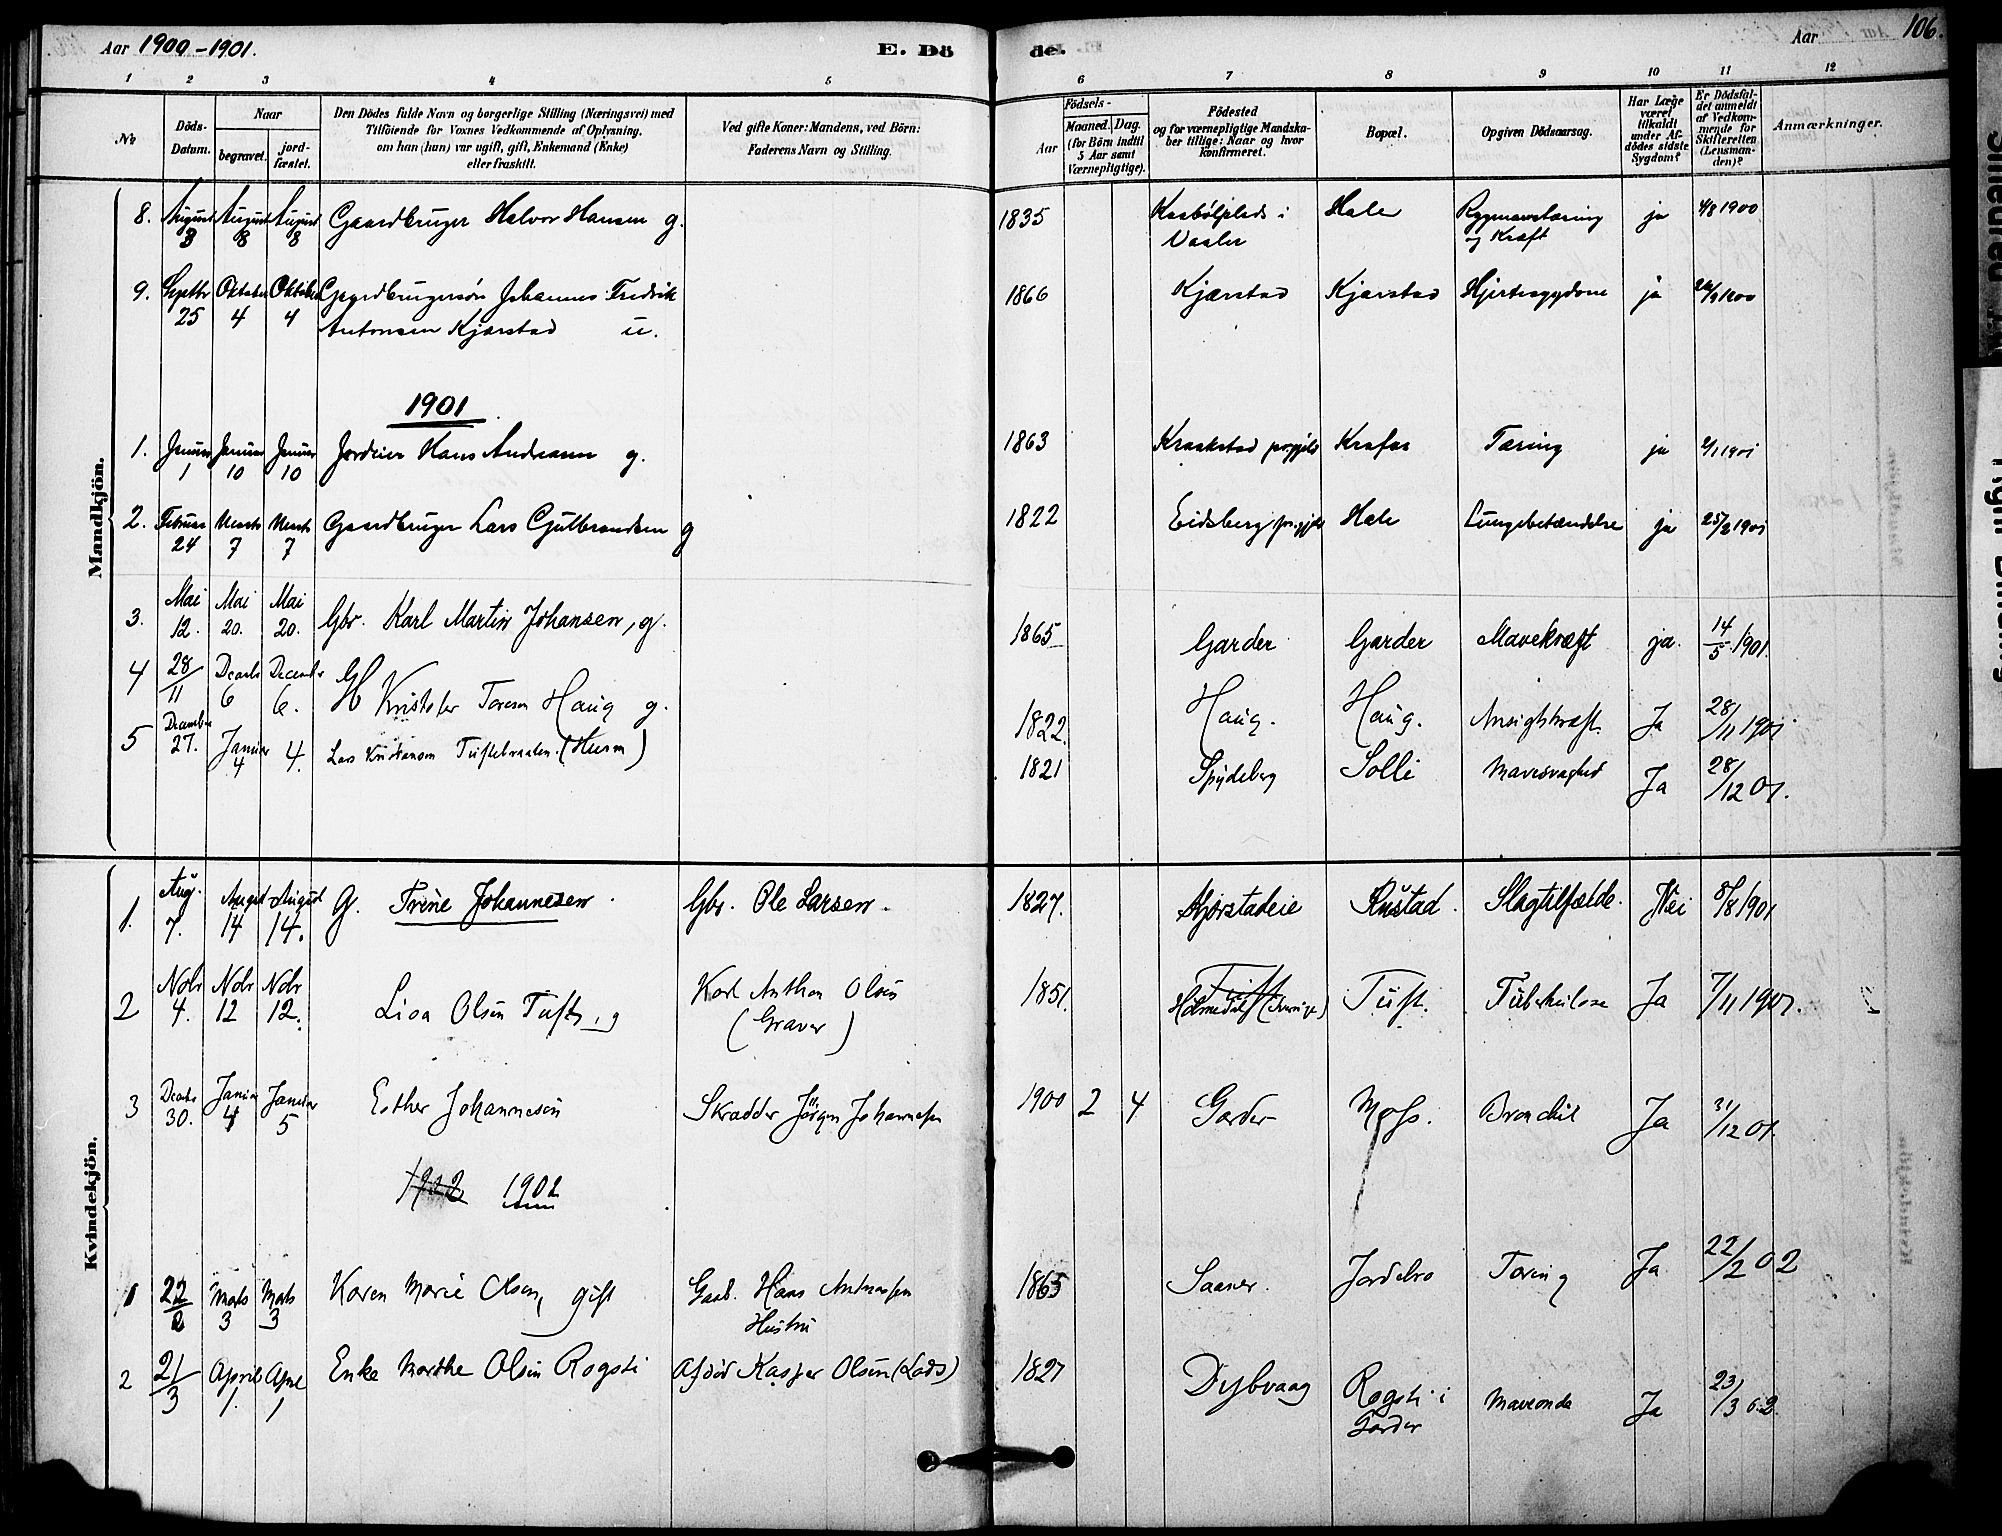 Aar 1900-1901.
E. Dö
de.
Aar
106.
1 2 3 4 5 6 7 8 9 10 11 12
No
Döds-Datum.
Naar
begravet.
jord-fæstet.
Den Dödes fulde Navn og borgerlige Stilling (Næringsvei) med
Tilföiende for Voxnes Vedkommende af Oplysning,
om han (hun) var ugift, gift, Enkemand (Enke)
eller fraskilt.
Ved gifte Koner: Mandens, ved Börn:
Faderens Navn og Stilling.
Födsels-
Aar
Maaned.
Dag.
(for Börn indtil
5 Aar samt
Værnepligtige).
Födested
og for værnepligtige Mandska-
ber tillige: Naar og hvor
Konfirmeret.
Bopæl.
Opgiven Dödsaarsag.
Har Læge
været
tilkaldt
under Af-
dödes sidste
Sygdom?
Er Dödsfal-
det anmeldt
af Vedkom-
mende for
Skifteretten
(Lensman-
den)?
Anmærkninger.
Mandkjön.
8. August 3 August 8 August 8 Gaardbruger Halvor Hansen g. 1835 Kaabölplads i Hale Rygmavstæring ja 4/8 1900
Vaaler og Kræft
9. Septbr 25 Oktober 4 Oktober 4 Gaardbrugersön Johannes Fredrik 1866 Kjærstad Kjærstad Hjertesygdom ja 26/9 1900
Antonsen Kjærstad u.
1901
1. Januar 1 Januar 10 Januar 10 Jordeier Hans Andreasen g. 1863 Kraakstad prgjeld Krafar Tæring ja 2/1 1901
2. Februar 24 Marts 7 Marts 7 Gaardbruger Lars Gulbrandsen g 1822 Eidsberg prgjeld Hale Lungebetændelse ja 25/2 1901
3. Mai 12. Mai 20. Mai 20. Gbr. Karl Martin Johansen, g. 1865 Garder Garder Mavekræft ja. 14/5 1901.
4 28/11 Decbr 6 December 6. Kristofer Toresen Haug g. 1822. Haug. Haug. Ansigtskræft Ja 28/11 1901
5 December 27. Januar 4 4. Lars Kristiansen Tuftebraaten (Husm) 1821 Spydeberg Solli Mavesvaghed Ja 28/12 01.
Kvindekjön.
1. Aug. 7. August 14 August 14. G. Trine Johannesen. Gbr. Ole Larsen. 1827. Kjærstadeie Rustad. Slagtilfælde. Nei 8/8 1901
2 Nobr 4. Nobr 12 Nobr 12. Lisa Olsen Tuft, g Karl Anthon Olsen 1851. Tuft Tuft. Tuberkulose Ja 7/11 1901.
(Graver) Holmedal (Sverige)
3 Decbr 30. Januar 4 Januar 5 Esther Johannesen Skrædder Jörgen Johannesen 1900 2 4 Garder Moss. Bronchit Ja 31/12 01.
1902 1902
1 22/2 Marts 3 Marts 3 Karen Marie Olsen, gift Gaab. Hans Andreassen 1865 Saaner. Jordebro Tæring Ja 22/2 02
Hustru
2 21/3 April 1. April 1 Enke Marthe Olsen Rogsti Afdöd Kasper Olsen (Lods) 1827 Dybvaag Rogsti i Maveonde Ja 23/3 02.
Garder